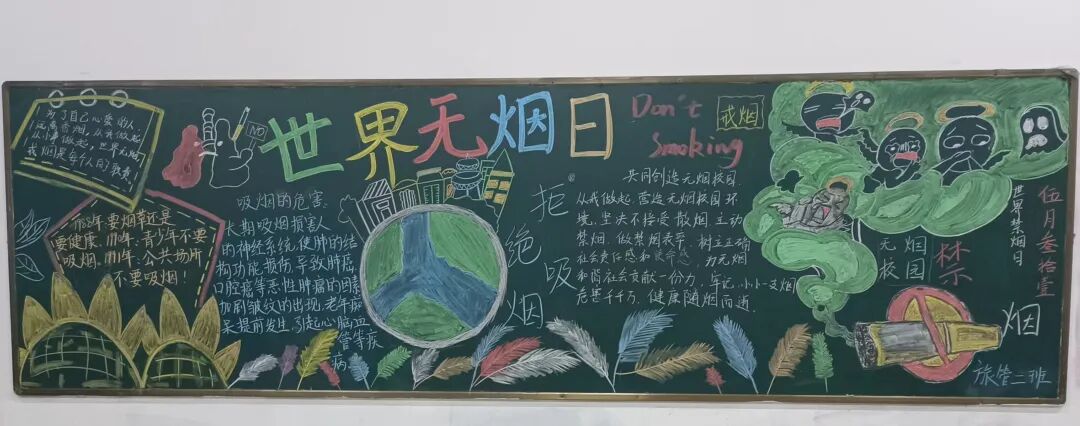 为了自己心爱的人
远离香烟,从我做起
从小事做起,世界无烟
戒烟是每个人的
1988年.要烟草还是
要健康.1990年.青少年不要
吸烟.1991年.公共场所
不要吸烟!
NO
世界无烟日
吸烟的危害:
长期吸烟损害人
的神经系统,使肺的结
构功能损伤,导致肺癌.
口腔癌等恶性肿瘤的因素
加剧皱纹的出现,老年痴
呆提前发生.引起心脑血
管等疾
病
拒绝吸烟
Don't
Smoking
戒烟
共同创造无烟校园.
从我做起.营造无烟校园环
境,坚决不接受散烟.主动
禁烟.做禁烟表率.树立正确
社会责任感和使命感.为无烟
和尚社会贡献一份力,牢记,小小一支烟
危害千千万.健康随烟而逝.
无烟
校园
禁
烟
世界禁烟日
伍月叁拾壹
旅管二班